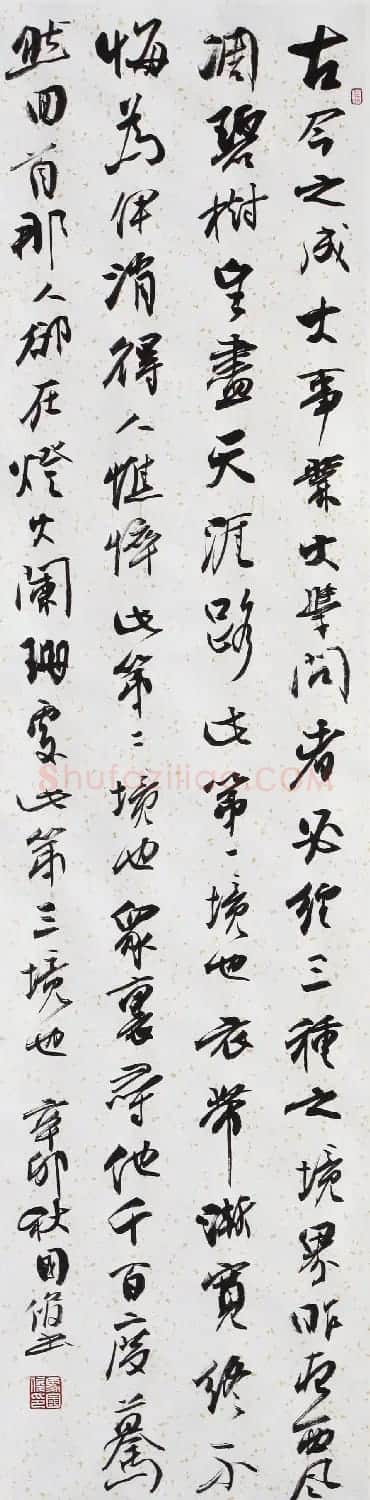 古今之成大事業大學問者必經三種之境界昨夜西風
凋碧樹望盡天涯路此第一境也衣帶漸寬終不
悔為伊消得人憔悴此第二境也眾裏尋他千百度驀
然回首那人卻在燈火闌珊處此第三境也 辛卯秋國
Shufaziliao.COM